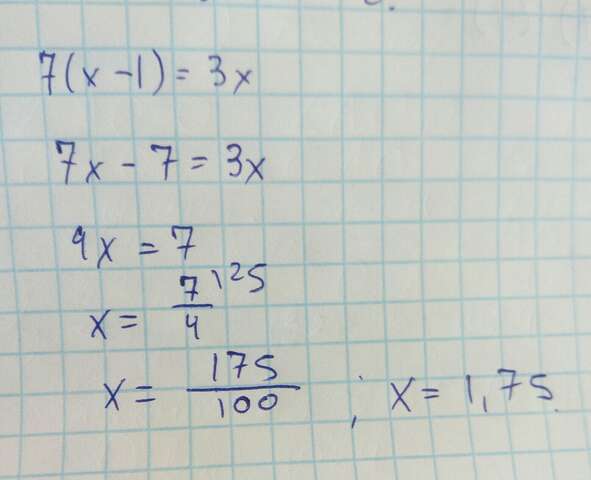 7(x-1)=3x
7x-7=3x
4x=7
x=7/4 \25
x=175/100; x=1,75.